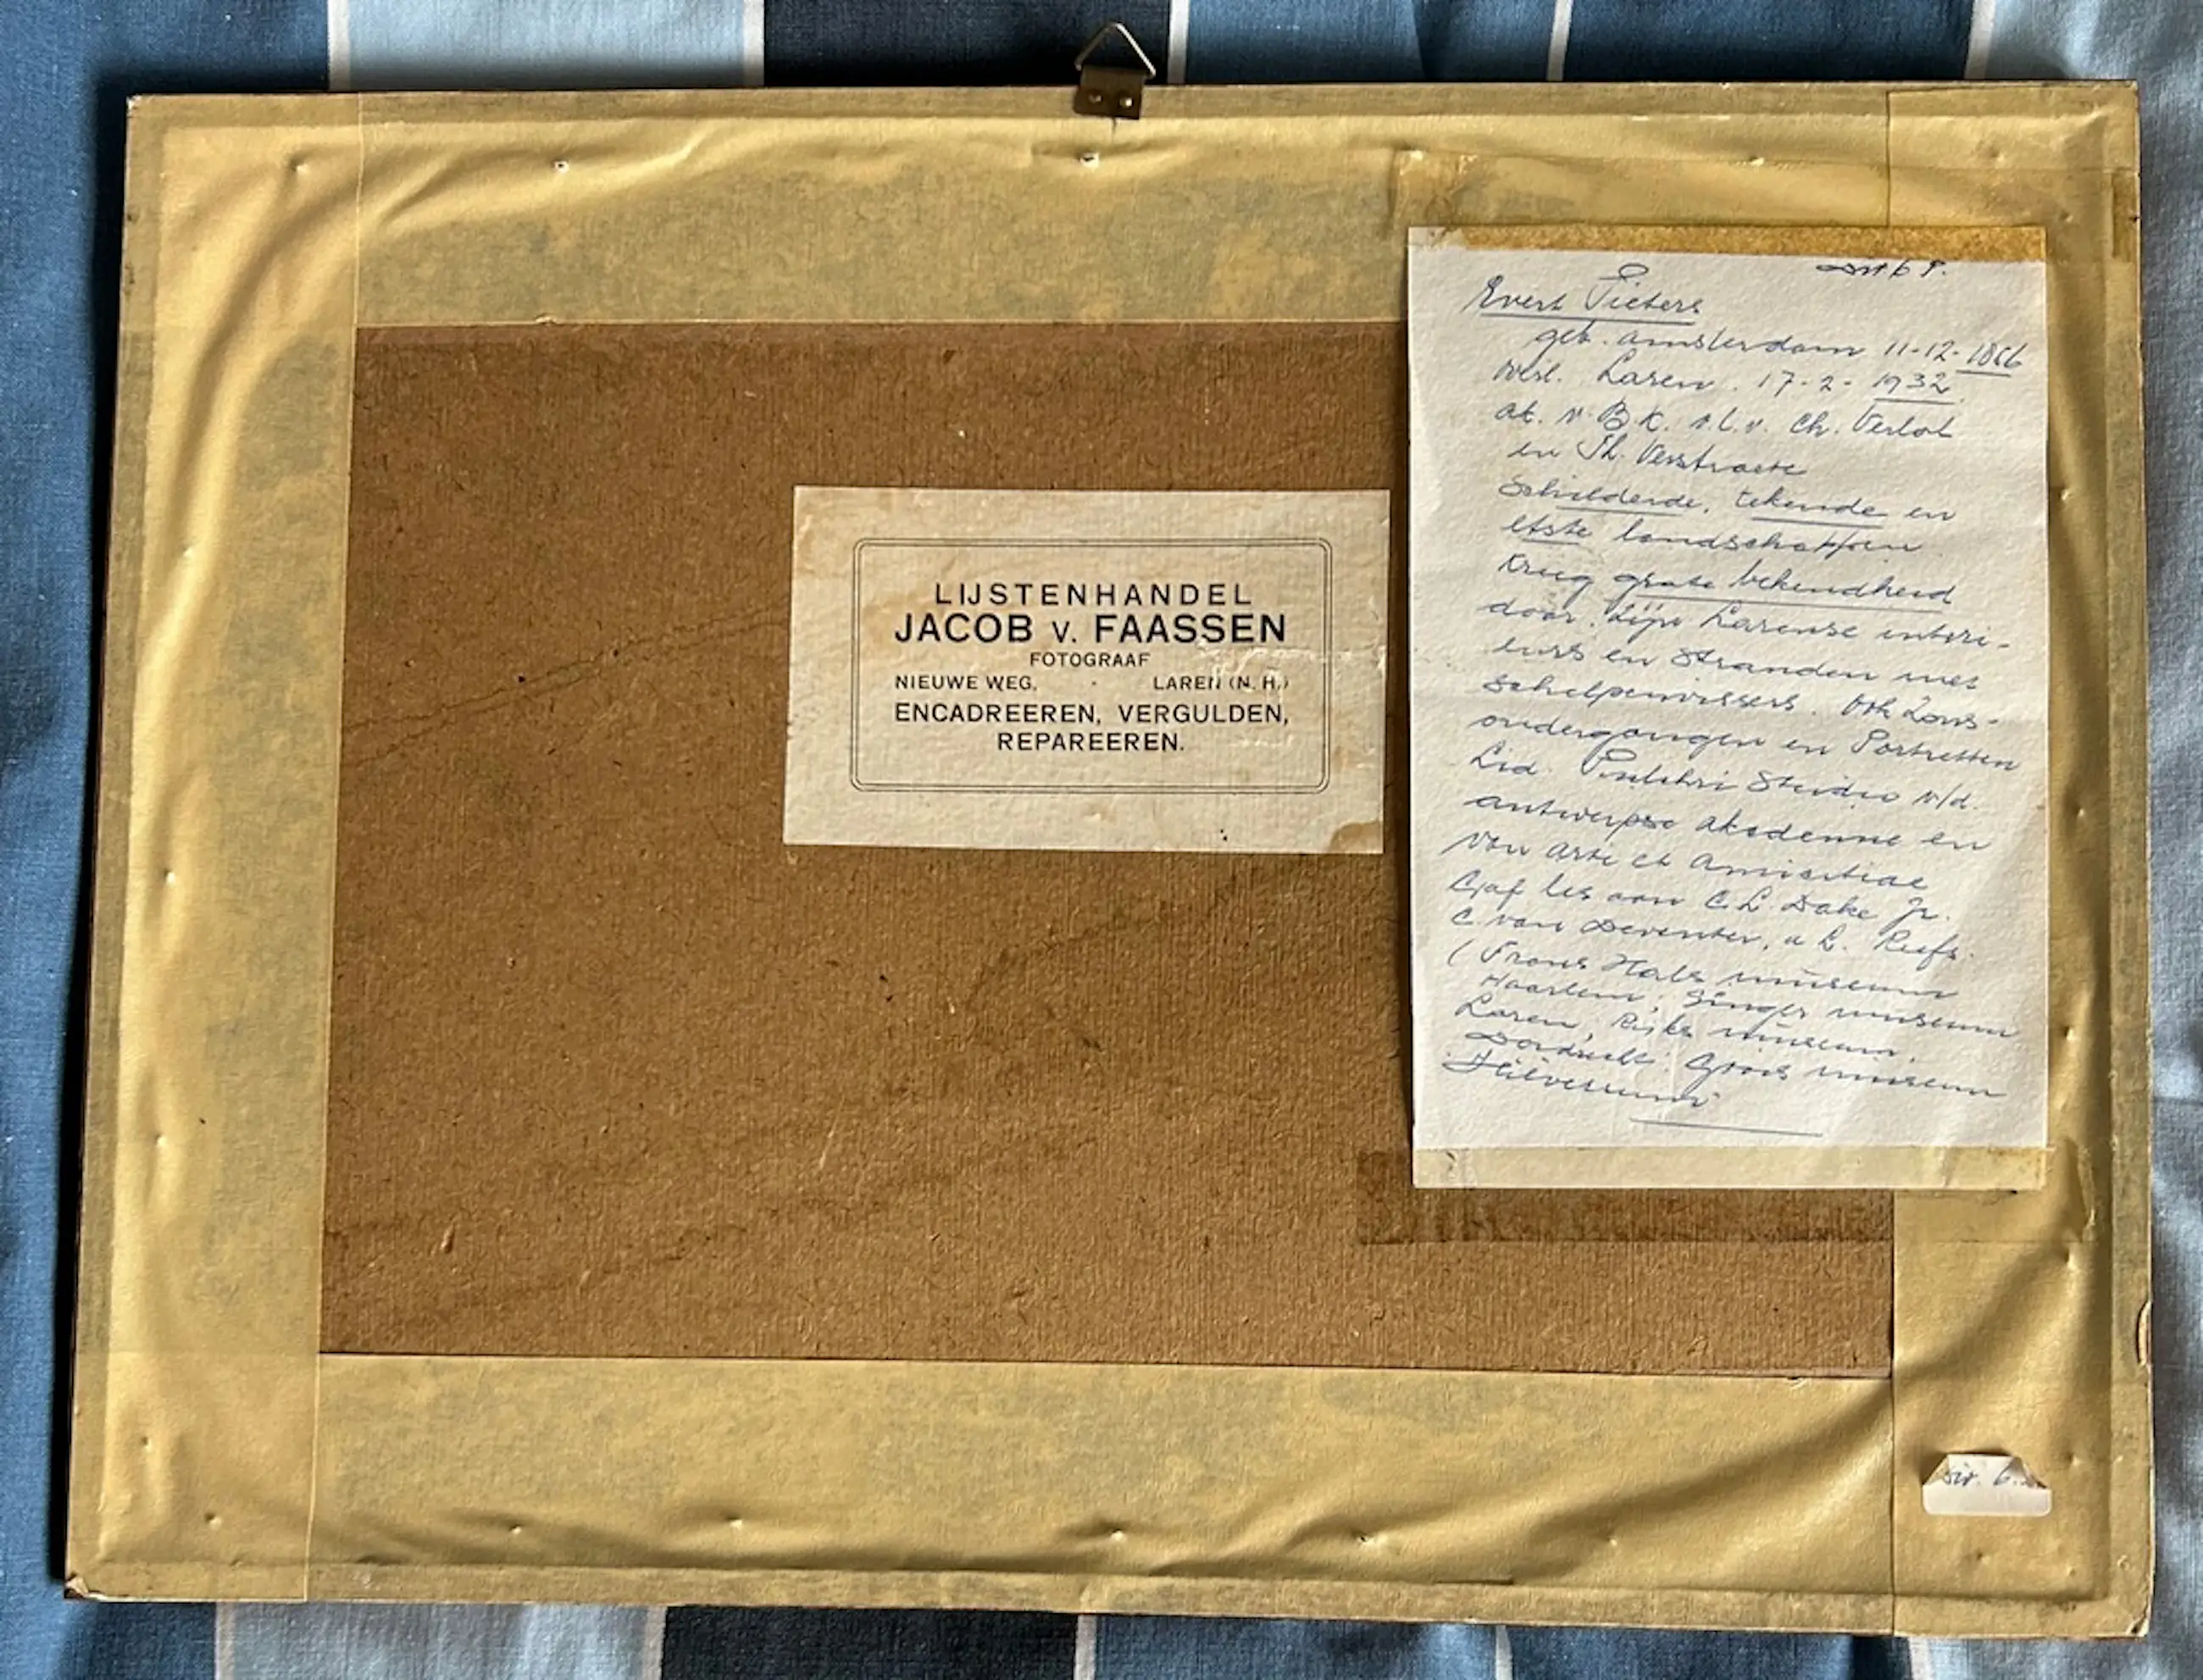 LIJSTENHANDEL
JACOB V. FAASSEN
FOTOGRAAF
NIEUWE WEG. - LAREN (N. H.)
ENCADREEREN, VERGULDEN,
REPAREEREN.
Evert Pieters
geb. Amsterdam 11-12-1856
overl. Laren. 17-2-1932
ak. v. B.K. o.l.v. Ch. Verlat
en Th. Verstraete
Schilderde, tekende en
etste landschappen.
Kreeg grote bekendheid
door zijn Larense interi-
eurs en Stranden met
schelpenvissers. Ook Zons-
ondergangen en Portretten
Lid. Pulchri Studio v/d.
antwerpse akademie en
van arti et Amicitiae
Gaf les aan C. L. Dake Jr.
C. van Deventer, a L. Roefs.
(Frans Hals museum
Haarlem, Singer museum
Laren, Rijks museum.
Dordrecht. Goois museum
Hilversum